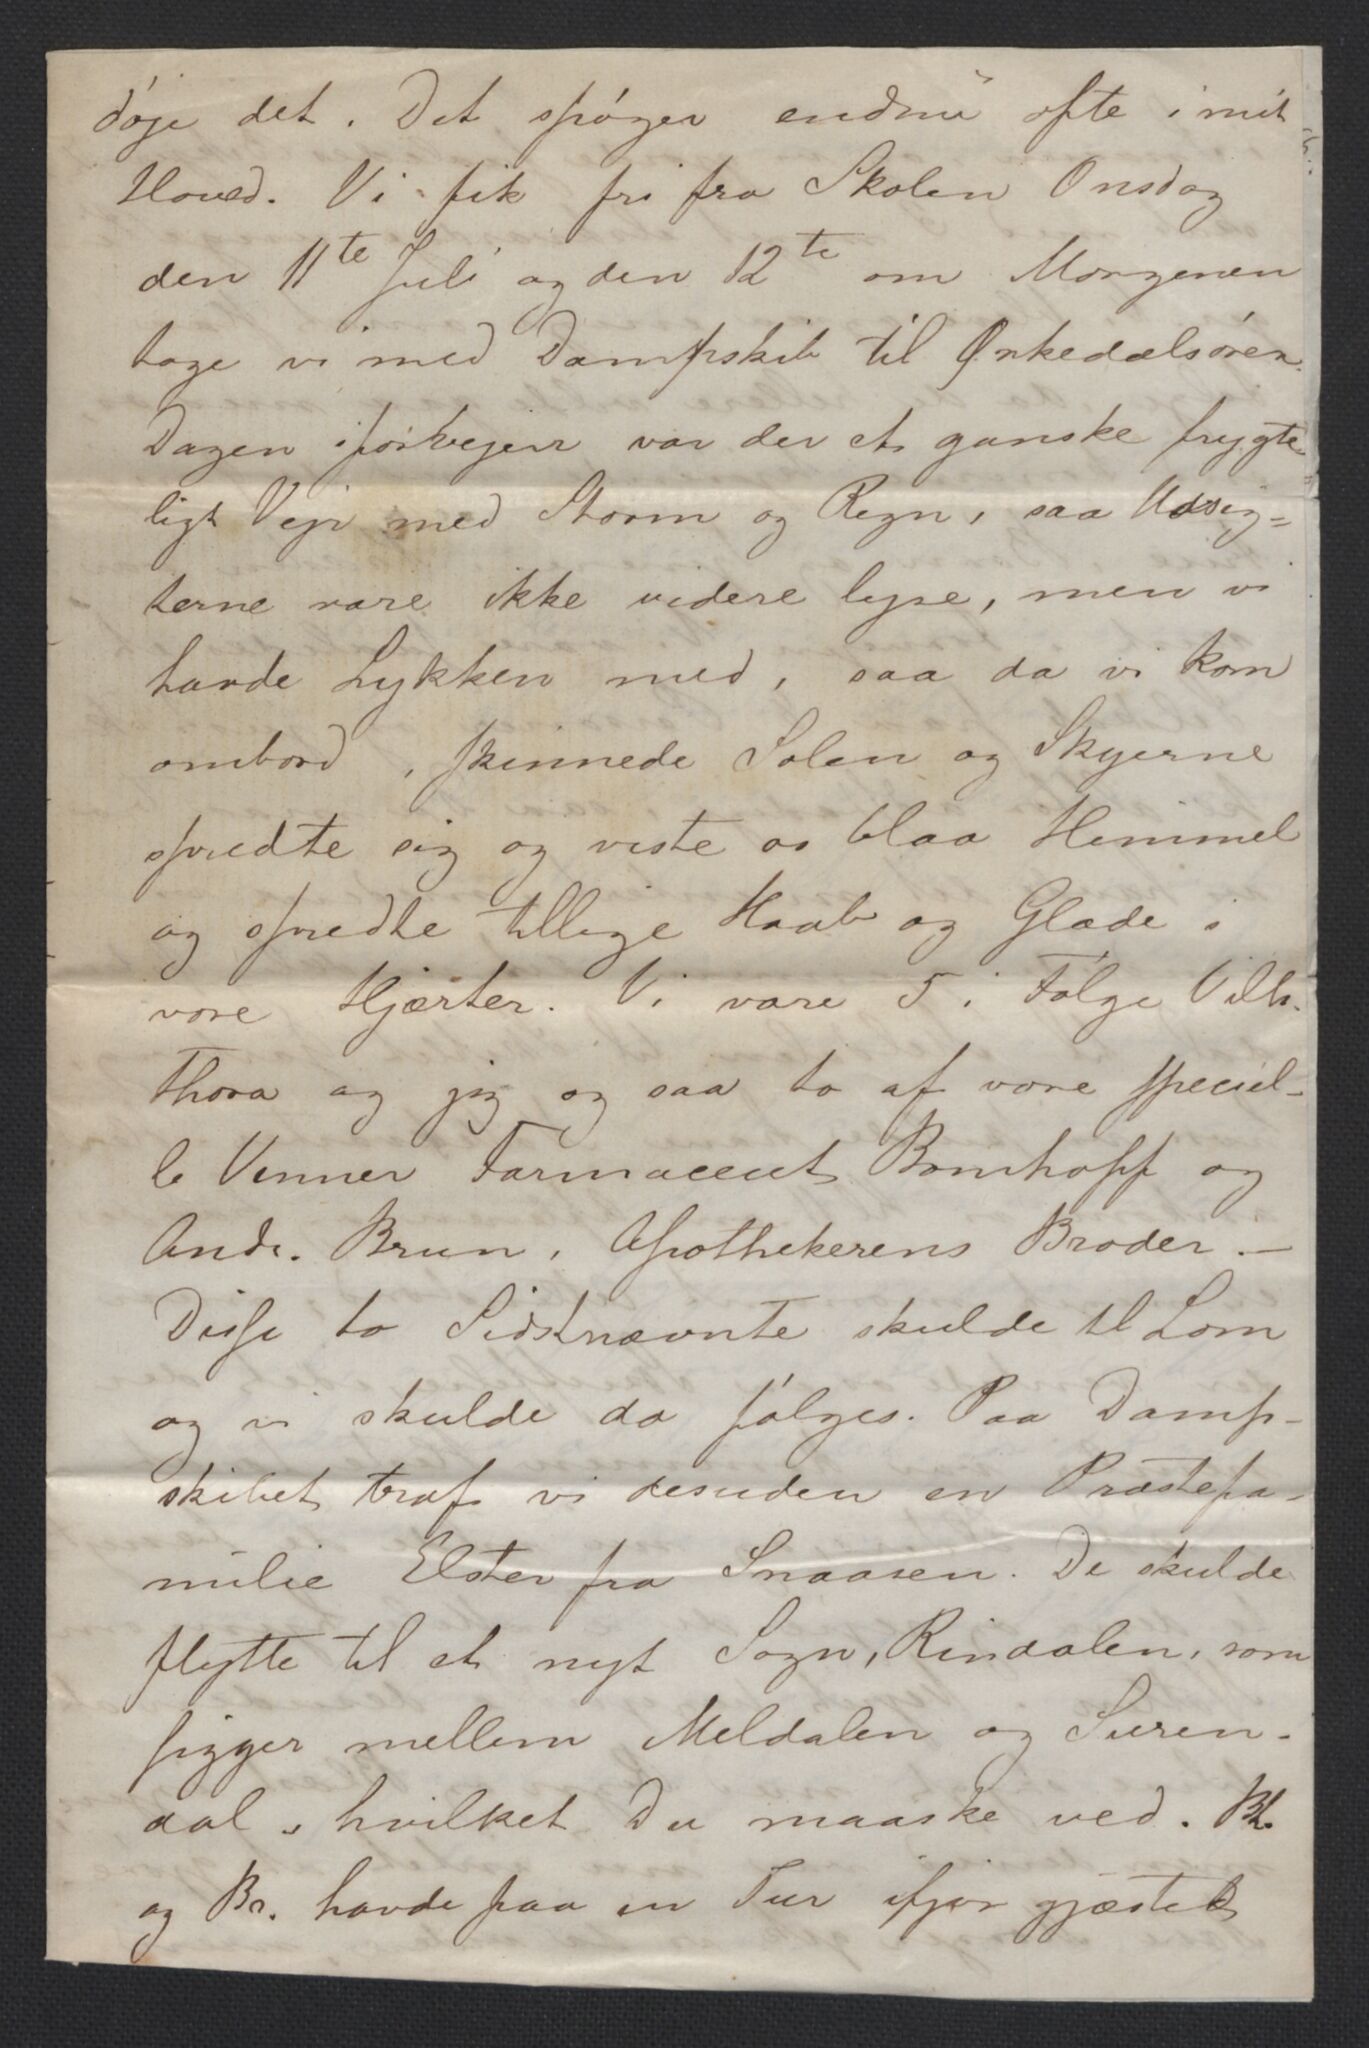 døje det. Det spøger endnu ofte i mit
Hoved. Vi fik fri fra Skolen Onsdag
den 11te Juli og den 12te om Morgenen
toge vi med Dampskib til Ørkedalsøren.
Dagen iforvejen var der et ganske frygte
ligt Vejr med Storm og Regn, saa Udsig=
terne vare ikke videre lyse, men vi
havde Lykken med, saa da vi kom
ombord, skinnede Solen og Skyerne
spredte sig og viste os blaa Himmel
og spredte tillige Haab og Glæde i
vore Hjærter. Vi vare 5 i Følge Vilh.
Thora og jeg og saa to af vore speciel-
le Venner Farmaceut Bomhoff og
Andr. Brun, Apothekerens Broder. —
Disse to Sidstnævnte skulde til Lom
og vi skulde da følges. Paa Damp-
skibet traf vi desuden en Præstefa-
milie Elster fra Snaasen. De skulde
flytte til et nyt Sogn, Rindalen, som
ligger mellem Meldalen og Suren-
dal, hvilket Du maaske ved. Bh.
og Br. havde paa en Tur ifjor gjæstet